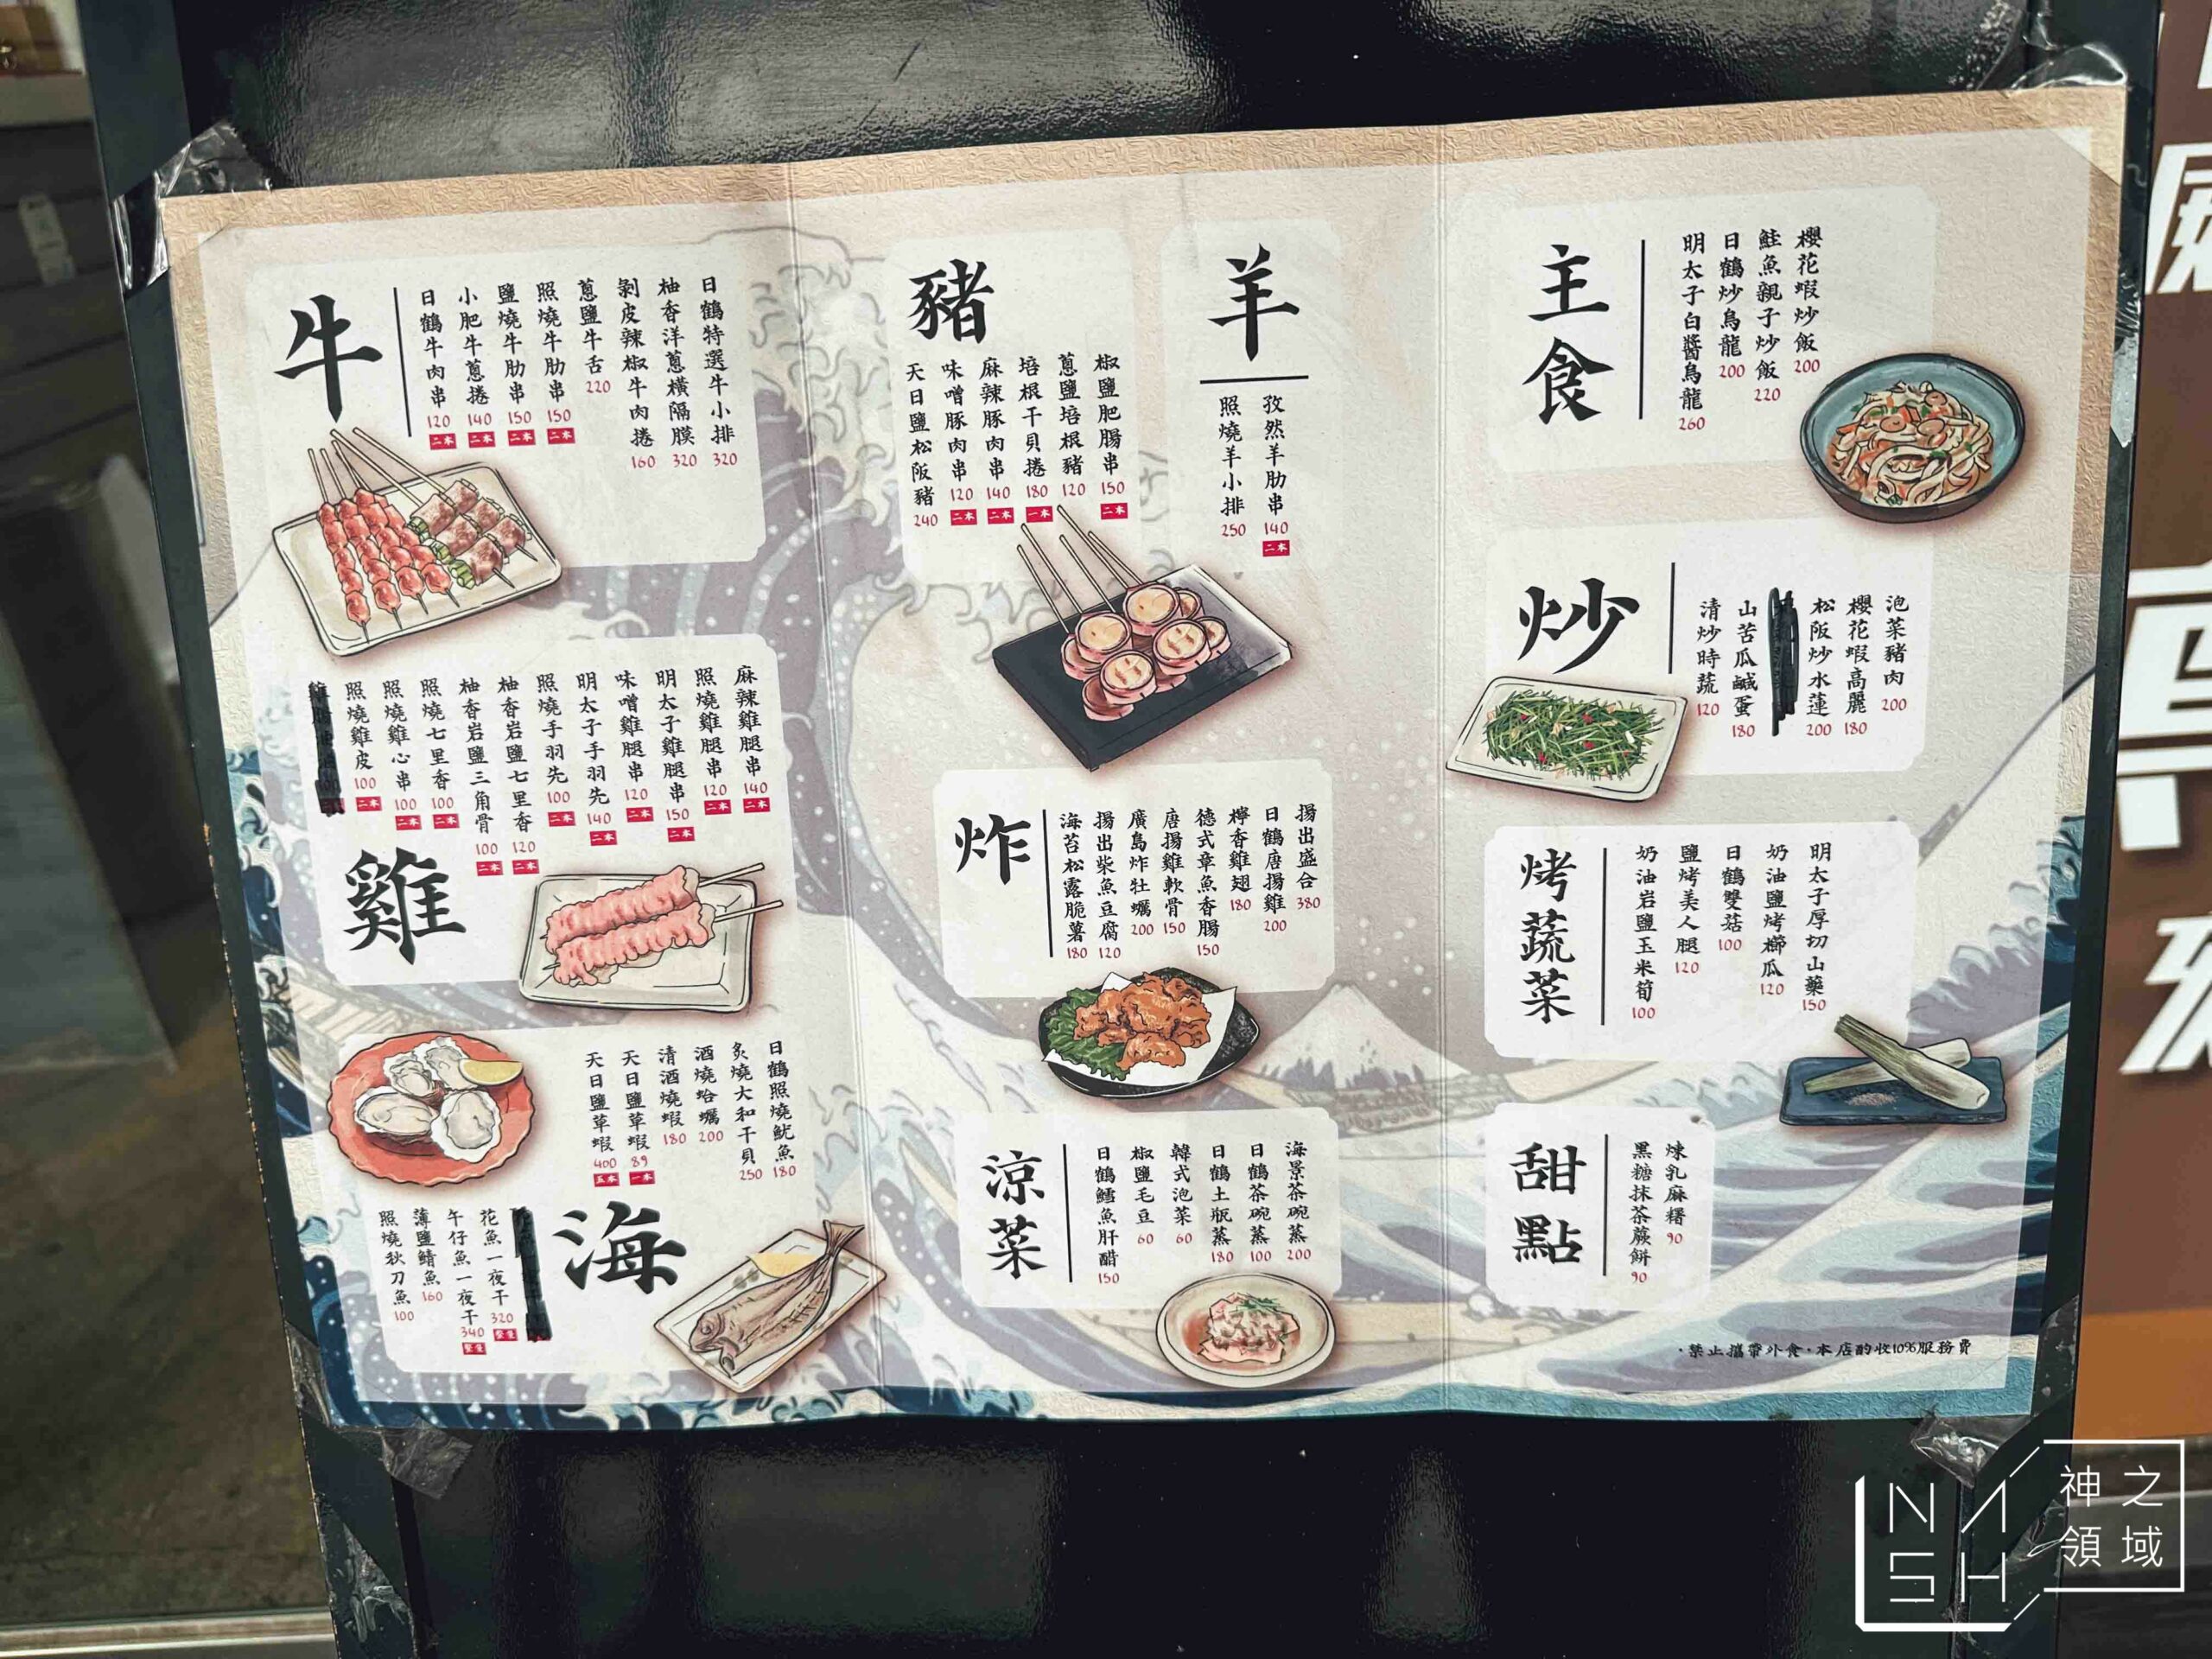 牛
日鶴牛肉串 120 二本
小肥牛蔥捲 140 二本
鹽燒牛肋串 150 二本
照燒牛肋串 150 二本
蔥鹽牛舌 220
剝皮辣椒牛肉捲 160
柚香洋蔥橫隔膜 320
日鶴特選牛小排 320
豬
天日鹽松阪豬 240
味噌豚肉串 120 二本
麻辣豚肉串 140 二本
培根干貝捲 180 一本
蔥鹽培根豬 120
椒鹽肥腸串 150 二本
羊
照燒羊小排 250
孜然羊肋串 140 二本
主食
明太子白醬烏龍 260
日鶴炒烏龍 200
鮭魚親子炒飯 220
櫻花蝦炒飯 200
炒
清炒時蔬 120
山苦瓜鹹蛋 180
松阪炒水蓮 200
櫻花蝦高麗 180
泡菜豬肉 200
雞
照燒雞皮 100 二本
照燒雞心串 100 二本
照燒七里香 100 二本
柚香岩鹽三角骨 100 二本
柚香岩鹽七里香 120 二本
照燒手羽先 100 二本
明太子手羽先 140 二本
味噌雞腿串 120 二本
明太子雞腿串 150 二本
照燒雞腿串 120 二本
麻辣雞腿串 140 二本
炸
海苔松露脆薯 180
揚出柴魚豆腐 120
廣島炸牡蠣 200
唐揚雞軟骨 150
德式章魚香腸 150
檸香雞翅 180
日鶴唐揚雞 200
揚出盛合 380
烤蔬菜
奶油岩鹽玉米筍 100
鹽烤美人腿 120
日鶴雙菇 100
奶油鹽烤櫛瓜 120
明太子厚切山藥 150
海
天日鹽草蝦 400 五本
天日鹽草蝦 89 一本
清酒燒蝦 180
酒燒蛤蠣 200
炙燒大和干貝 250
日鶴照燒魷魚 180
照燒秋刀魚 100
薄鹽鯖魚 160
午仔魚一夜干 340
花魚一夜干 320
涼菜
日鶴鱈魚肝醋 150
椒鹽毛豆 60
韓式泡菜 60
日鶴土瓶蒸 180
日鶴茶碗蒸 100
海景茶碗蒸 200
甜點
黑糖抹茶蕨餅 90
煉乳麻糬 90
·禁止攜帶外食,本店酌收10%服務費
NASH
神之領域